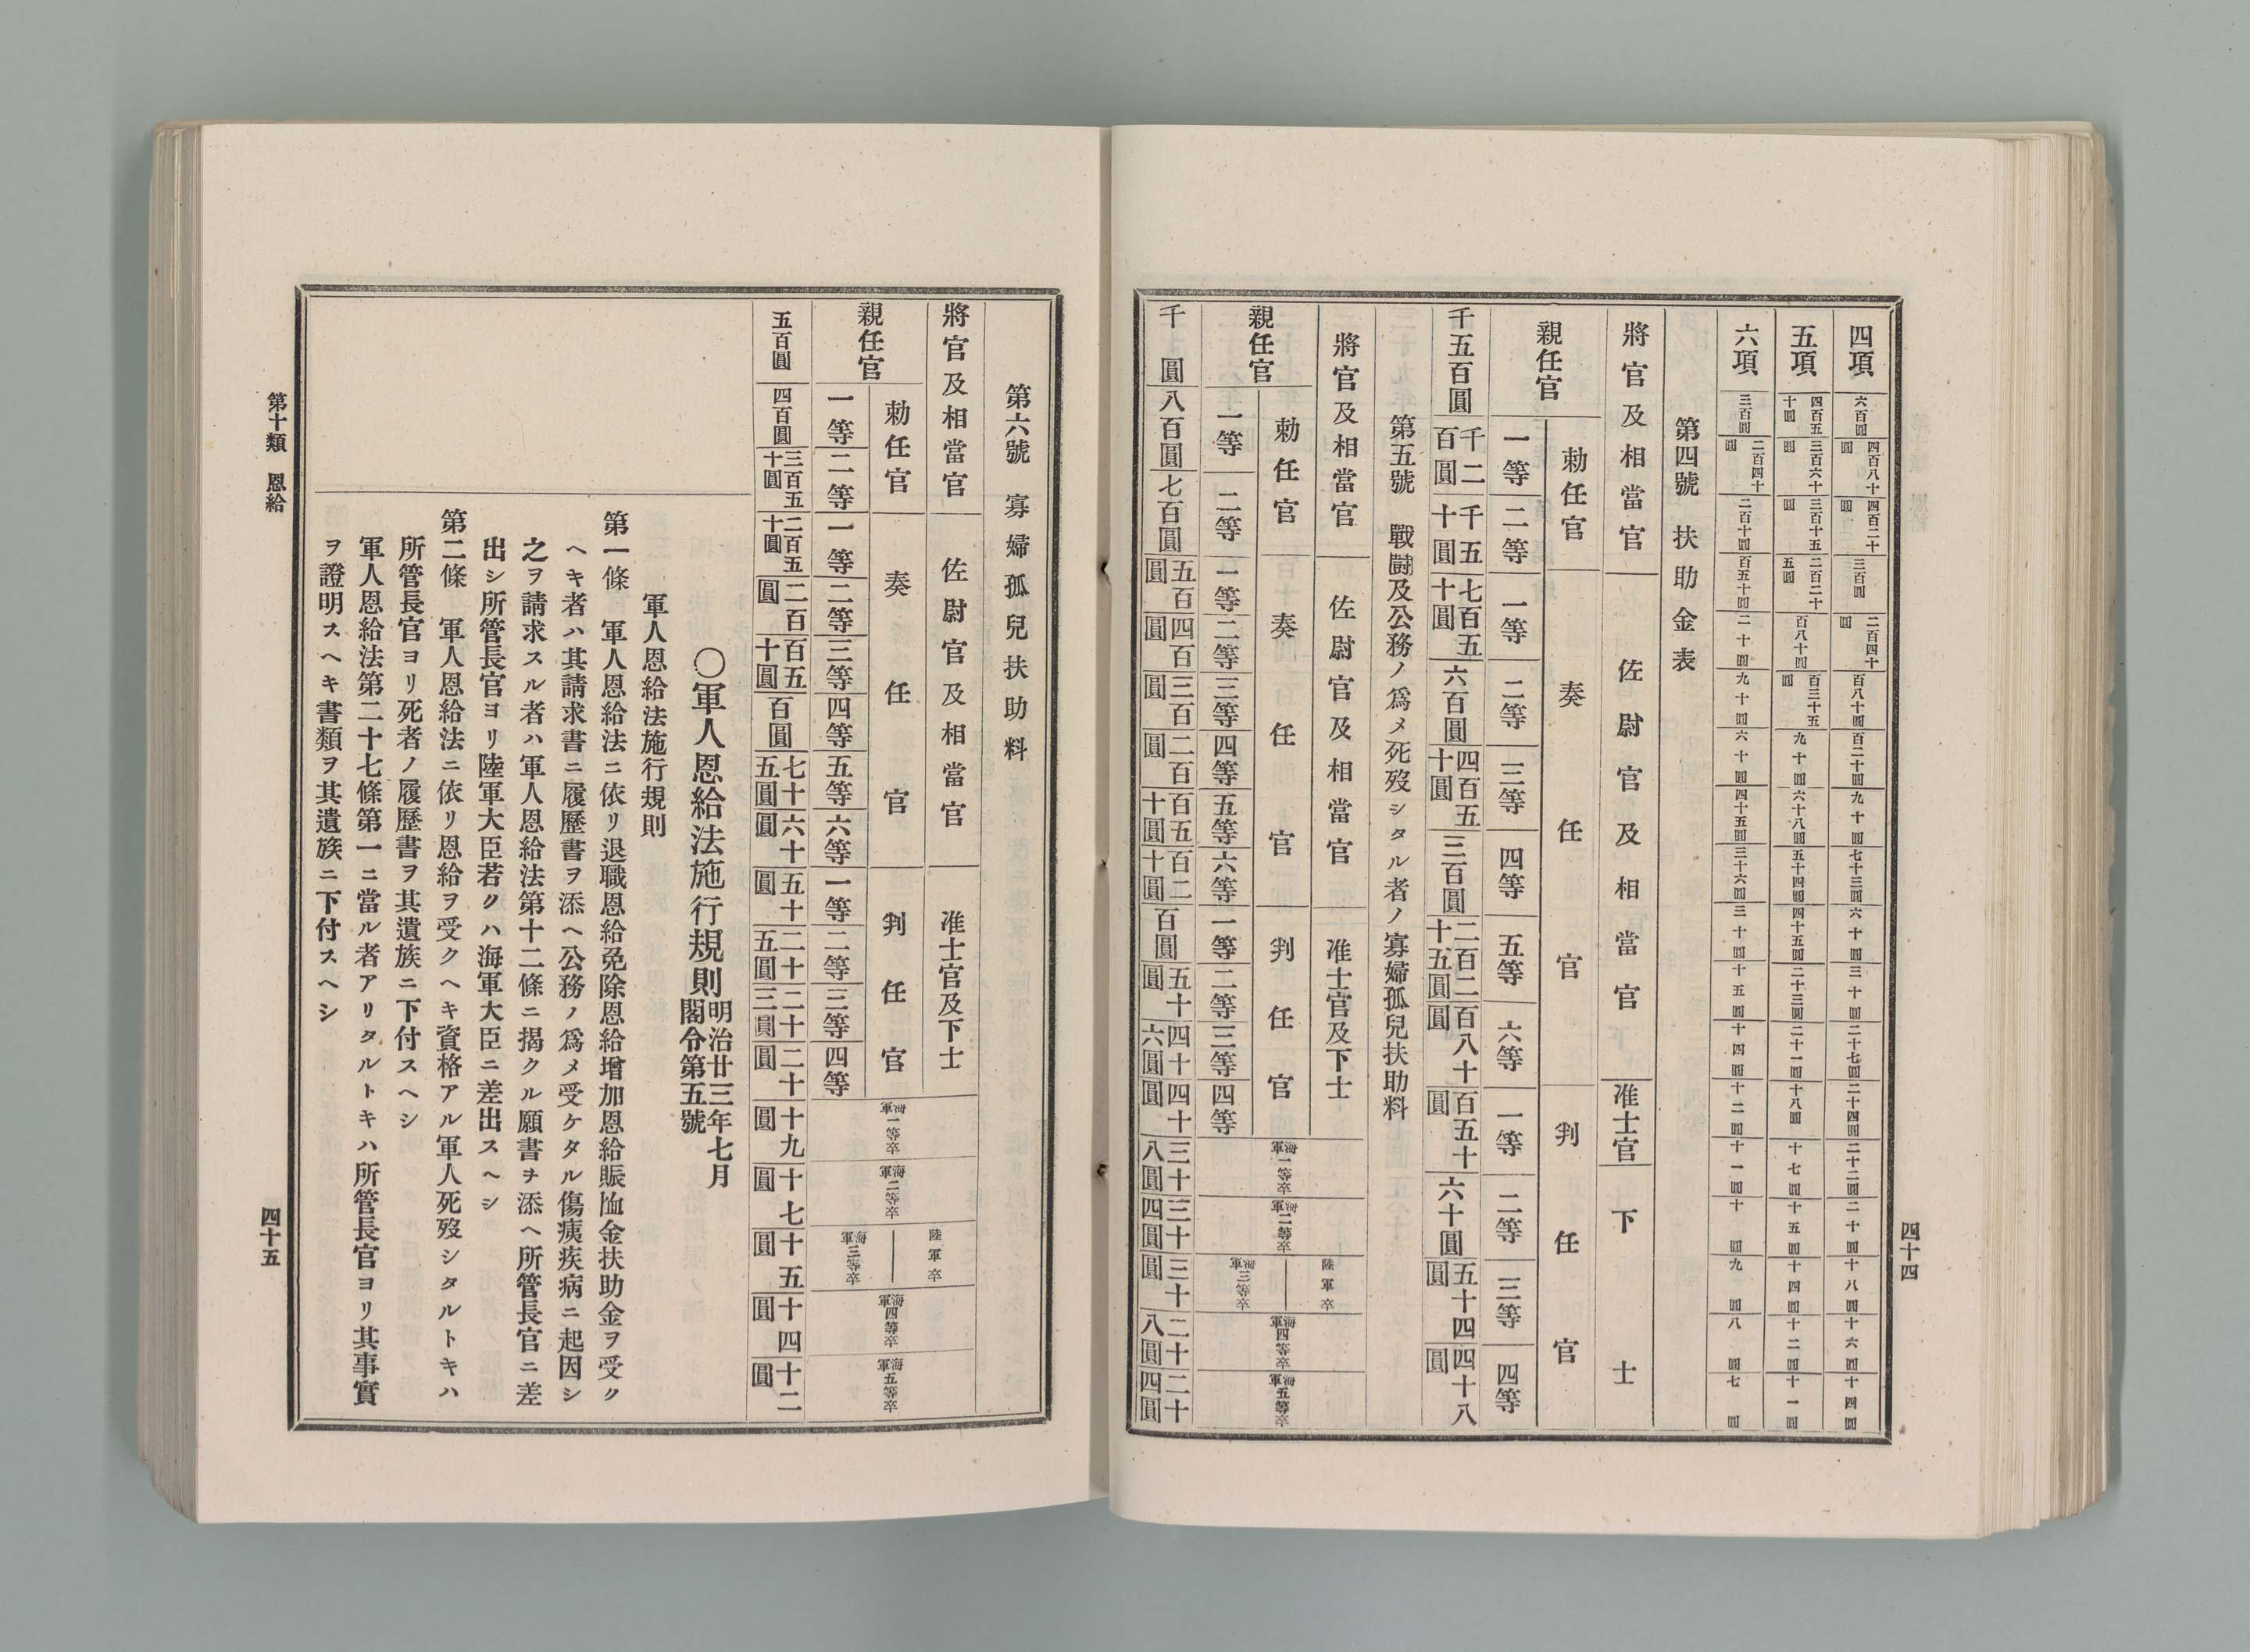 四十四
四項 六百圓 四百八十圓 四百二十圓 三百圓 二百四十圓 百八十圓 百二十圓 九十圓 七十三圓 六十圓 三十圓 二十七圓 二十四圓 二十二圓 二十圓 十八圓 十六圓 十四圓
五項 四百五十圓 三百六十圓 三百十五圓 二百二十五圓 百八十圓 百三十五圓 九十圓 六十八圓 五十四圓 四十五圓 二十三圓 二十一圓 十八圓 十七圓 十五圓 十四圓 十二圓 十一圓
六項 三百圓 二百四十圓 二百十圓 百五十圓 二十圓 九十圓 六十圓 四十五圓 三十六圓 三十圓 十五圓 十四圓 十二圓 十一圓 十圓 九圓 八圓 七圓
第四號 扶助金表
將官及相當官 佐尉官及相當官 准士官 下士
親任官 勅任官 奏任官 判任官
一等 二等 一等 二等 三等 四等 五等 六等 一等 二等 三等 四等
千五百圓 千二百圓 千五十圓 七百五十圓 六百圓 四百五十圓 三百圓 二百二十五圓 百八十圓 百五十圓 六十圓 五十四圓 四十八圓
第五號 戰鬪及公務ノ爲メ死歿シタル者ノ寡婦孤兒扶助料
將官及相當官 佐尉官及相當官 准士官及下士
親任官 勅任官 奏任官 判任官 海軍一等卒 海軍二等卒 陸軍卒 海軍三等卒 海軍四等卒 海軍五等卒
一等 二等 一等 二等 三等 四等 五等 六等 一等 二等 三等 四等
千圓 八百圓 七百圓 五百圓 四百圓 三百圓 二百圓 百五十圓 百二十圓 百圓 五十圓 四十六圓 四十圓 三十八圓 三十四圓 三十圓 二十八圓 二十四圓
第六號 寡婦孤兒扶助料
將官及相當官 佐尉官及相當官 准士官及下士
親任官 勅任官 奏任官 判任官 海軍一等卒 海軍二等卒 陸軍卒 海軍三等卒 海軍四等卒 海軍五等卒
一等 二等 一等 二等 三等 四等 五等 六等 一等 二等 三等 四等
五百圓 四百圓 三百五十圓 二百五十圓 二百圓 百五十圓 百圓 七十五圓 六十圓 五十圓 二十五圓 二十三圓 二十圓 十九圓 十七圓 十五圓 十四圓 十二圓
〇軍人恩給法施行規則 明治廿三年七月
閣令第五號
軍人恩給法施行規則
第一條 軍人恩給法ニ依リ退職恩給免除恩給增加恩給賑恤金扶助金ヲ受ク
ヘキ者ハ其請求書ニ履歷書ヲ添ヘ公務ノ爲メ受ケタル傷痍疾病ニ起因シ
之ヲ請求スル者ハ軍人恩給法第十二條ニ揭クル願書ヲ添ヘ所管長官ニ差
出シ所管長官ヨリ陸軍大臣若クハ海軍大臣ニ差出スヘシ
第二條 軍人恩給法ニ依リ恩給ヲ受クヘキ資格アル軍人死歿シタルトキハ
所管長官ヨリ死者ノ履歷書ヲ其遺族ニ下付スヘシ
軍人恩給法第二十七條第一ニ當ル者アリタルトキハ所管長官ヨリ其事實
ヲ證明スヘキ書類ヲ其遺族ニ下付スヘシ
第十類 恩給
四十五